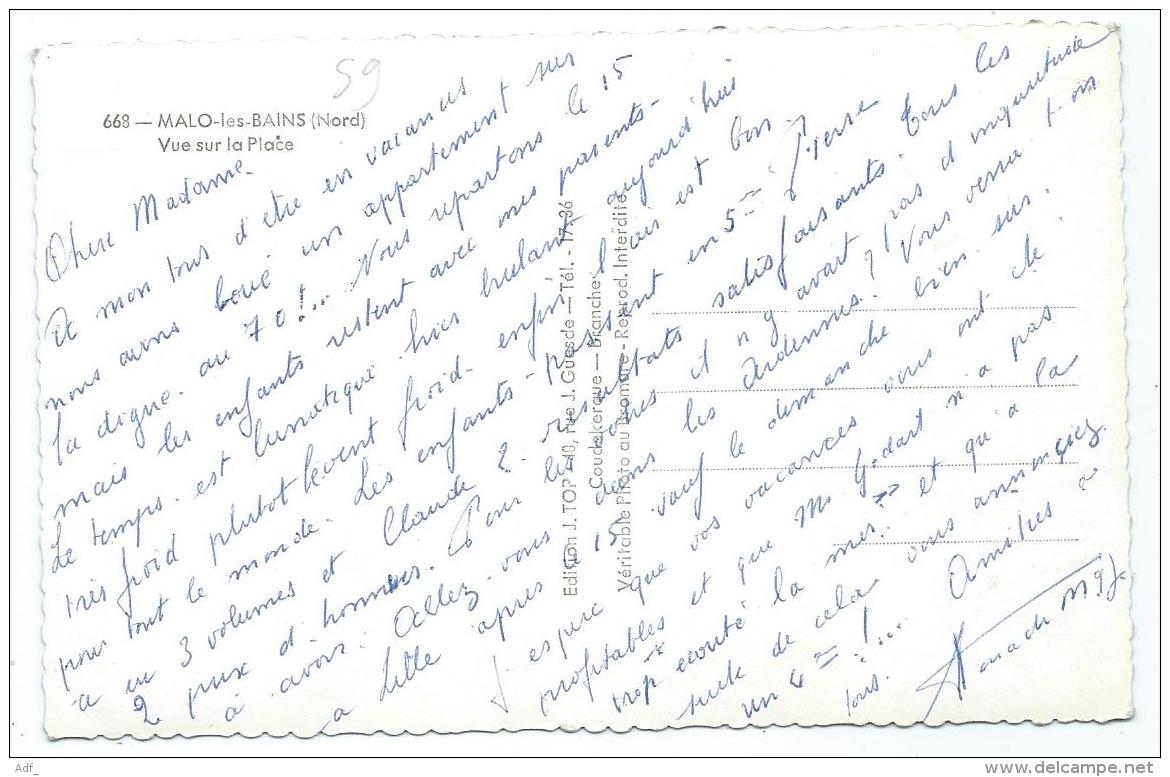 59
668 — MALO-les-BAINS (Nord)
Vue sur la Place
Chere Madame.
A mon tour d'être en vacances
nous avons loué un appartement sur
la digue. au 70!.. Nous repartons le 15
mais les enfants restent avec mes parents-
Le temps. est lunatique. hier brulant aujourd'hui
très froid plutot le vent froid. enfin l'air est bon
pour tout le monde. Les enfants - passent en 5e Pierre
a eu 3 volumes et Claude 2. resultats satisfaisants. Tous les
2 prix d'honneur. Pour les voires il n'y avait pas d'inquietude
à avoir. Allez-vous dans les Ardennes? Vous verra t-on
a Lille après le 15 sauf le dimanche bien sur.
J'espère que vos vacances vous ont été
profitables et que Mr Godart n'a pas
trop ecouté la mer." et qu'a la
suite de cela vous annonciez
un 4e!... Amitiés à
tous.
Edition J. TOP - 40, rue J. Guesde — Tél. - 17.36
Coudekerque — Branche
Véritable Photo au Bromure - Reprod. Interdite
Adf_
www.delcampe.net